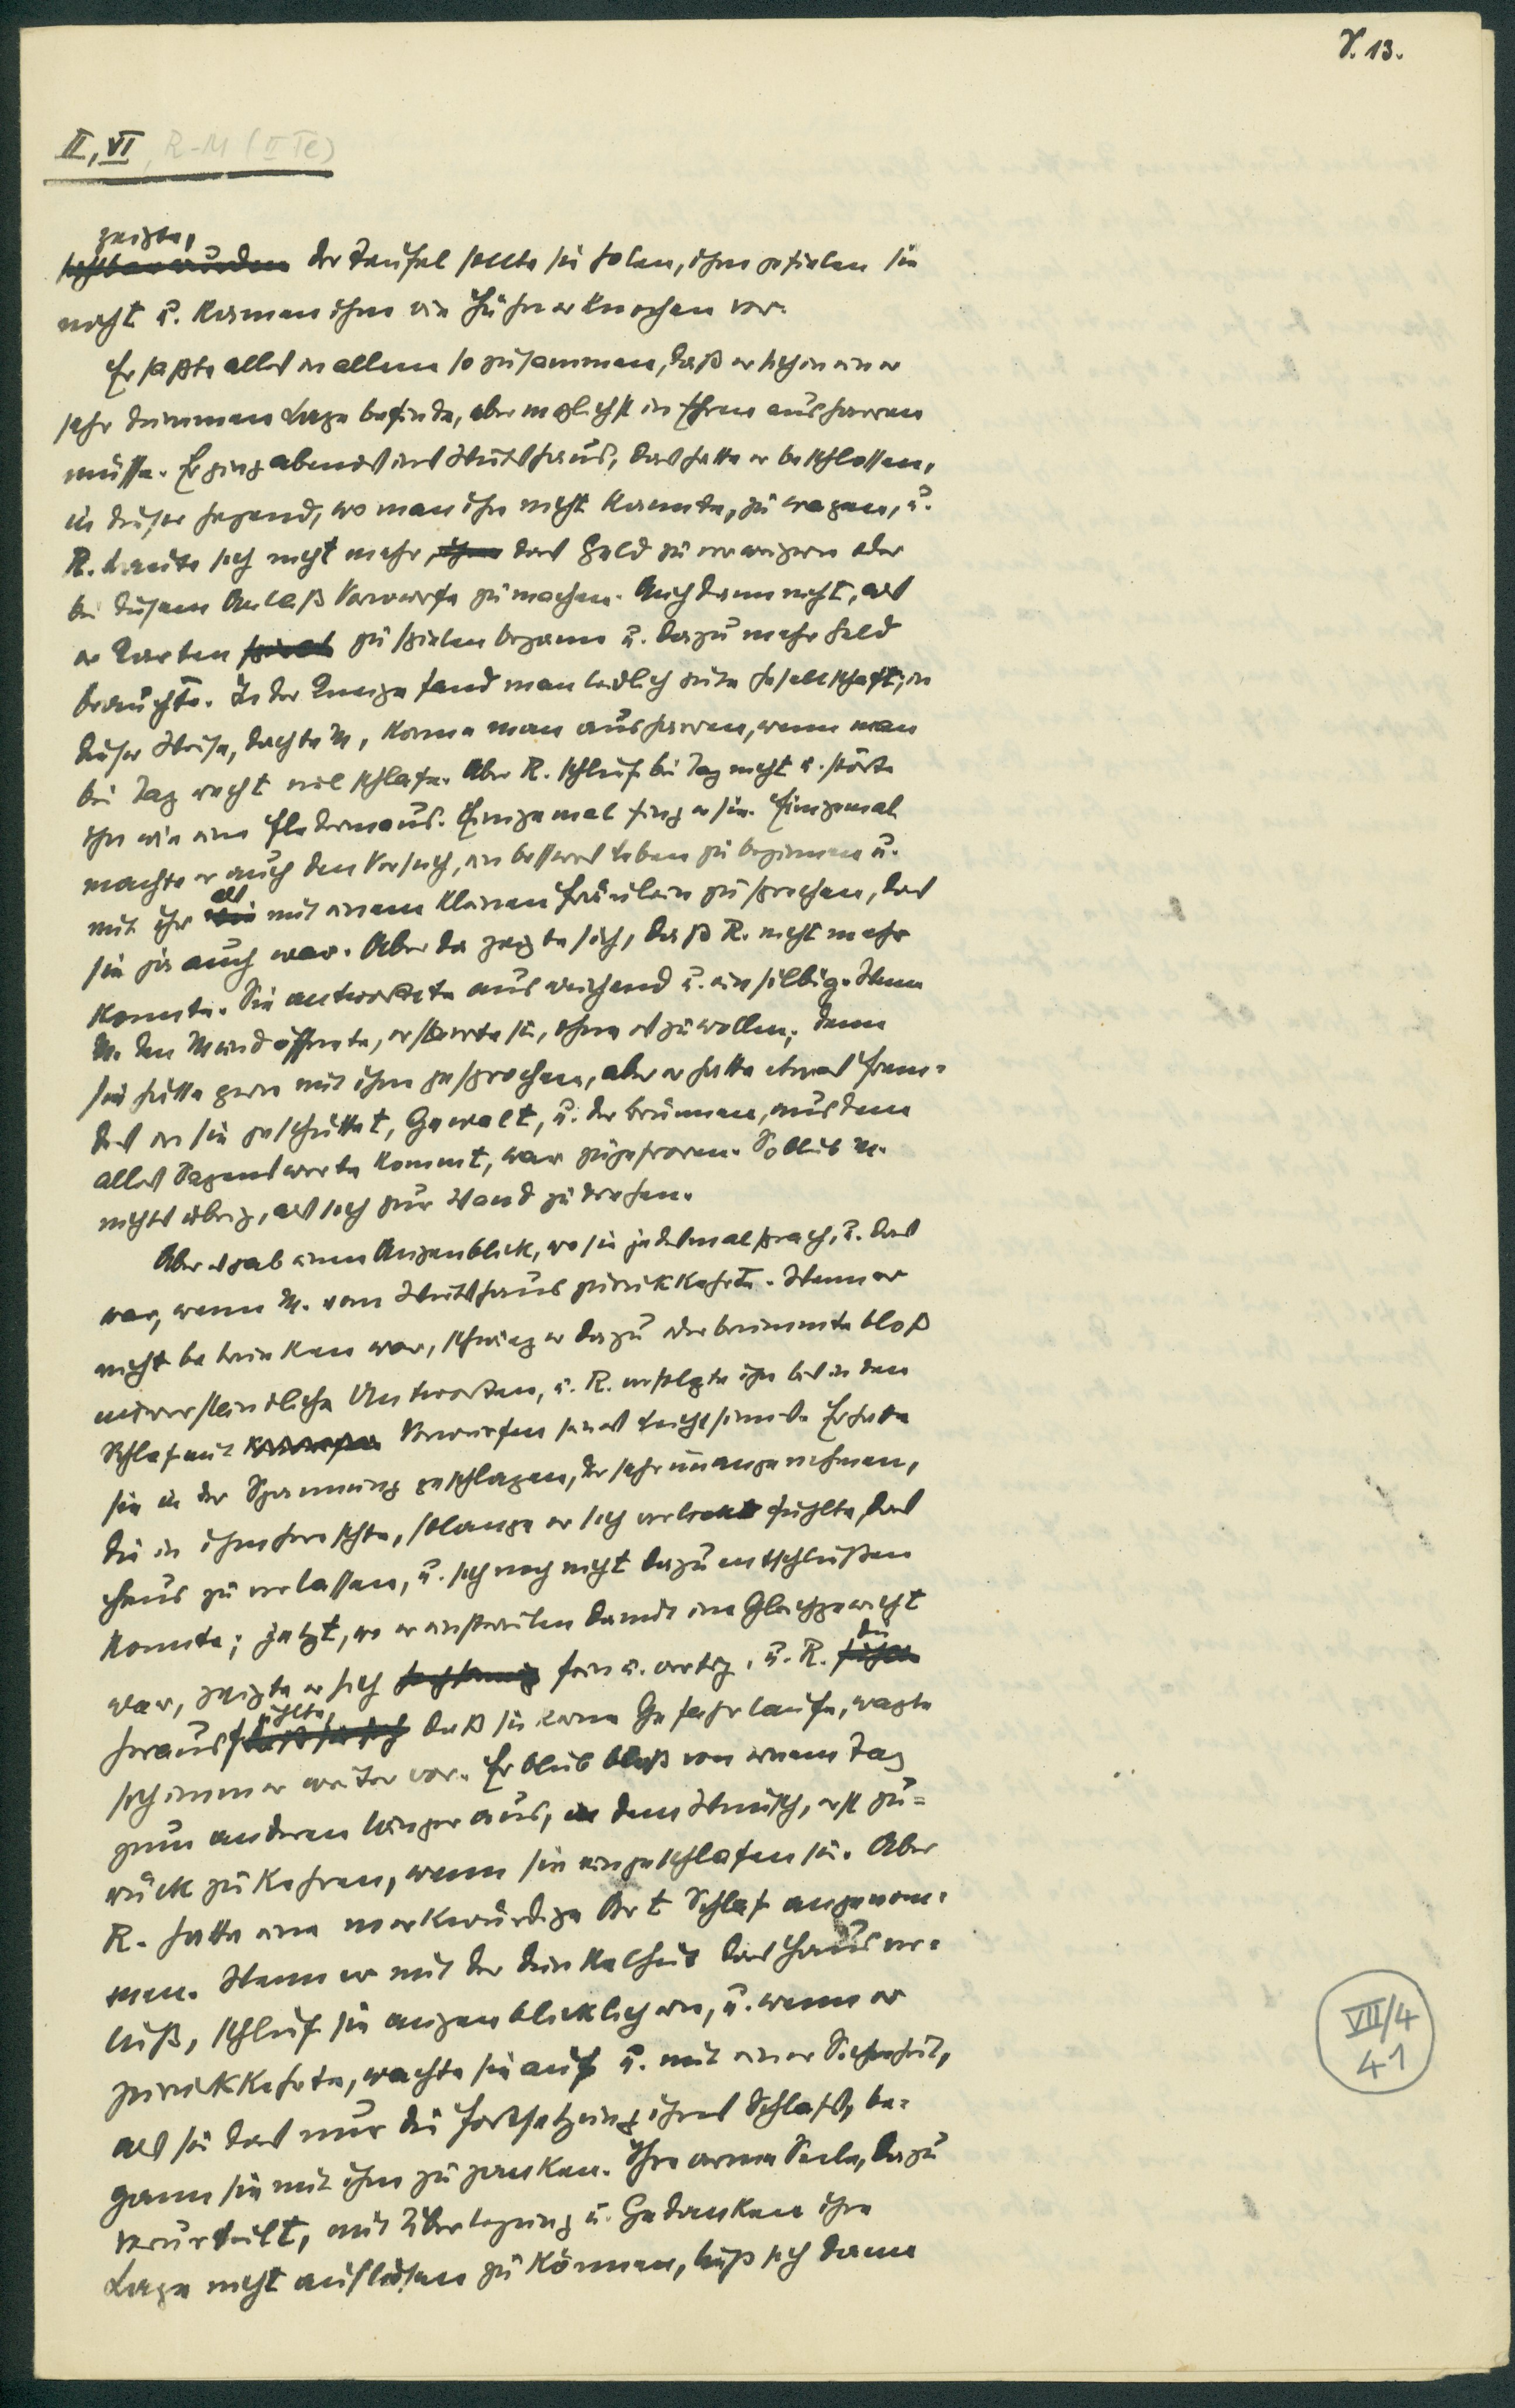 V. 13.
II, VI, R-M (II Te)
zeigte,
sichtbar wurden der Teufel sollte sie holen, ihm gefielen sie
nicht u. kamen ihm wie Hühnerknochen vor.
Er faßte alles in allem so zusammen, daß er sich in einer
sehr dummen Lage befinde, aber möglichst in Ehren ausharren
müsse. Er ging abends ins Wirtshaus, das hatte er beschlossen,
in dieser Gegend, wo man ihn nicht kannte, zu wagen, u.
R. traute sich nicht mehr, ihm das Geld zu verweigern oder
bei diesem Anlaß Vorwürfe zu machen. Auch dann nicht, als
er Karten spielt zu spielen begann u. dazu mehr Geld
brauchte. In der Kneipe fand man leidlich gute Gesellschaft; in
dieser Weise, dachte M, könne man ausharren, wenn man
bei Tag recht viel schlafe. Aber R. schlief bei Tag nicht u. störte
ihn wie eine Fledermaus. Einigemal fing er sie. Einigemal
machte er auch den Versuch, ein besseres Leben zu beginnen u.
als
mit ihr wie mit einem kleinen Fräulein zu sprechen, das
sie ja auch war. Aber da zeigte sich, daß R. nicht mehr
konnte. Sie antwortete ausweichend u. einsilbig. Wenn
M. den Mund öffnete, erstarrte sie, ohne es zu wollen; denn
sie hätte gern mit ihm gesprochen, aber er hatte etwas Frem-
des in sie geschüttet, Gewalt, u. der Brunnen, aus dem
alles Sagenswerte kommt, war zugefroren. So blieb M.
nichts übrig, als sich zur Wand zu drehen.
Aber es gab einen Augenblick, wo sie jedesmal sprach, u. das
war, wenn M. vom Wirtshaus zurückkehrte. Wenn er
nicht betrunken war, schwieg er dazu oder brummte bloß
unverständliche Antworten, u. R. verfolgte ihn bis in den
Schlaf mit Vorwürfen seines Leichtsinns. Er hatte
sie in der Spannung geschlagen, der sehr unangenehmen,
die in ihm herrschte, solange er sich verlockt fühlte, das
Haus zu verlassen, u. sich noch nicht dazu entschließen
konnte; jetzt, wo er einstweilen damit im Gleichgewicht
die
war, zeigte er sich fein u. artig, u. R.
ühlte,
herausf daß sie keine Gefahr laufe, wagte
sich immer weiter vor. Er blieb bloß von einem Tag
zum anderen länger aus, in dem Wunsch, erst zu=
rück zu kehren, wenn sie eingeschlafen sei. Aber
R. hatte eine merkwürdige Art Schlaf angenom-
men. Wenn er mit der Dunkelheit das Haus ver-
ließ, schlief sie augenblicklich ein, u. wenn er
zurückkehrte, wachte sie auf u. mit einer Sicherheit,
als sei das nur die Fortsetzung ihres Schlafs, be-
gann sie mit ihm zu zanken. Ihre arme Seele, dazu
verurteilt, mit Überlegung u. Gedanken ihre
Lage nicht auflösen zu können, ließ sich dann
VII/4
41